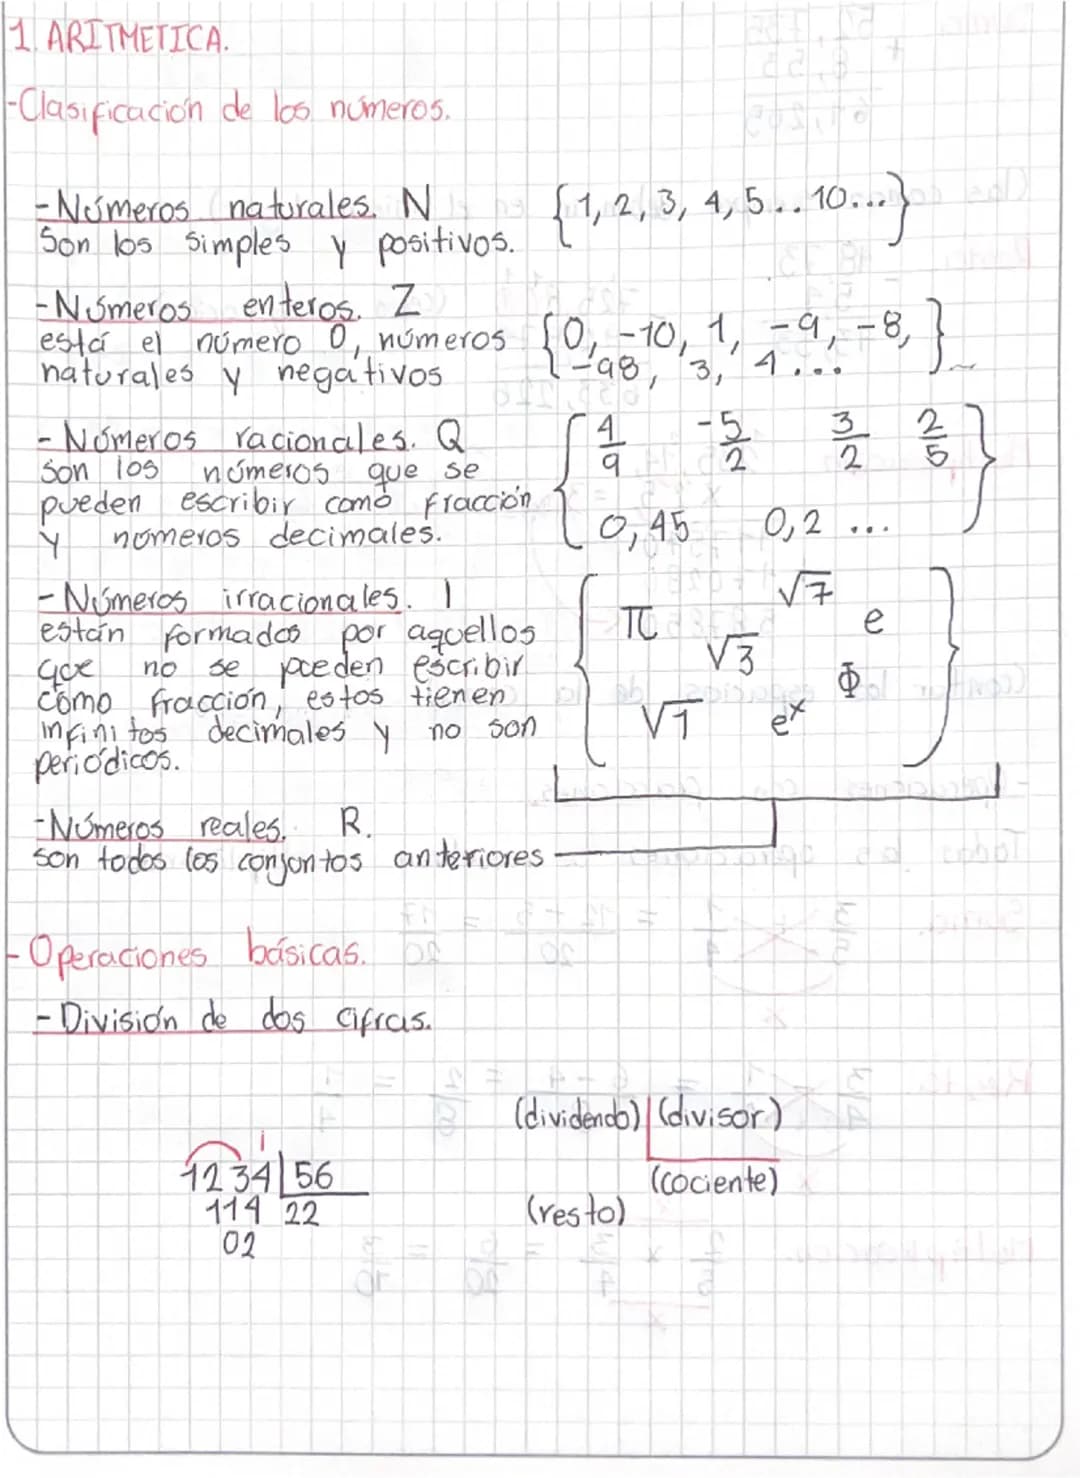 1. ARITMETICA.
-Clasificación de los números.
-Números naturales. N {1, 2, 3, 4, 5.. 10...}
Son los simples y positivos.
-Números enteros. Z
está el número 0, números {0, -10, 1, -9, -8, }
naturales y negativos -98, 3, 4...
-Números racionales. Q 4/9 -5/2 3/2 2/5
son los números que se
pueden escribir como fracción
y números decimales. 0,45 0,2 ...
-Números irracionales. I √7
están formados por aquellos π e
que no se pueden escribir √3
como fracción, estos tienen Φ
infinitos decimales y no son √1 e^x
periódicos.
-Números reales. R.
son todos los conjuntos anteriores
-Operaciones básicas.
-División de dos cifras.
(dividendo) (divisor)
1234 56 (cociente)
114 22 (resto)
02